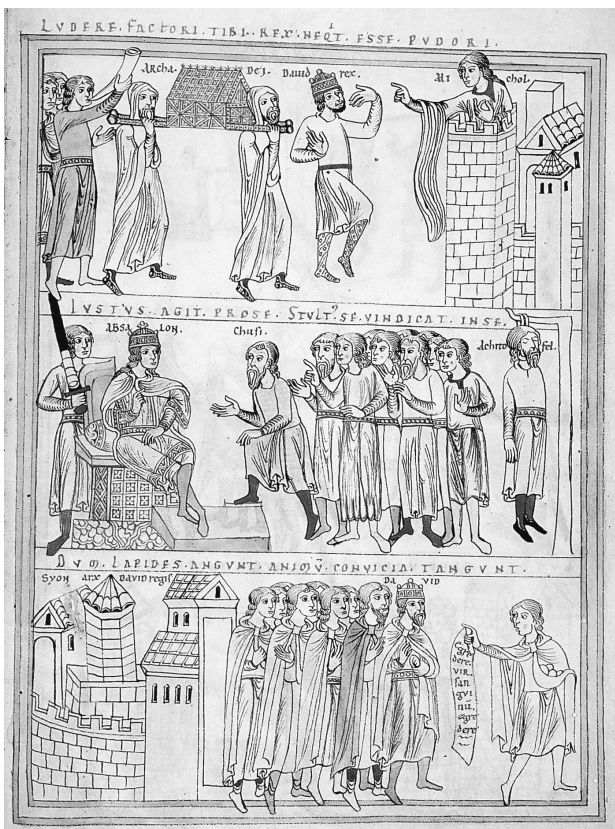 LVDERE . FACTORI . TIBI . REX . NEQIT . ESSE . PVDORI .
ARCHA . DEI . DAVID rex . MI chol .
IVSTVS . AGIT . PROSE . STVLTꝰ . SE . VINDICAT . IN SE .
ABSA LON . Chusi . Achito fel .
DVM . LAPIDES . ANGVNT . ANIMŪ . CONVICIA . TANGUNT .
SYON ARX DAVID regis DA VID
dere .
VIR
san
gui
nū .
egre
dere